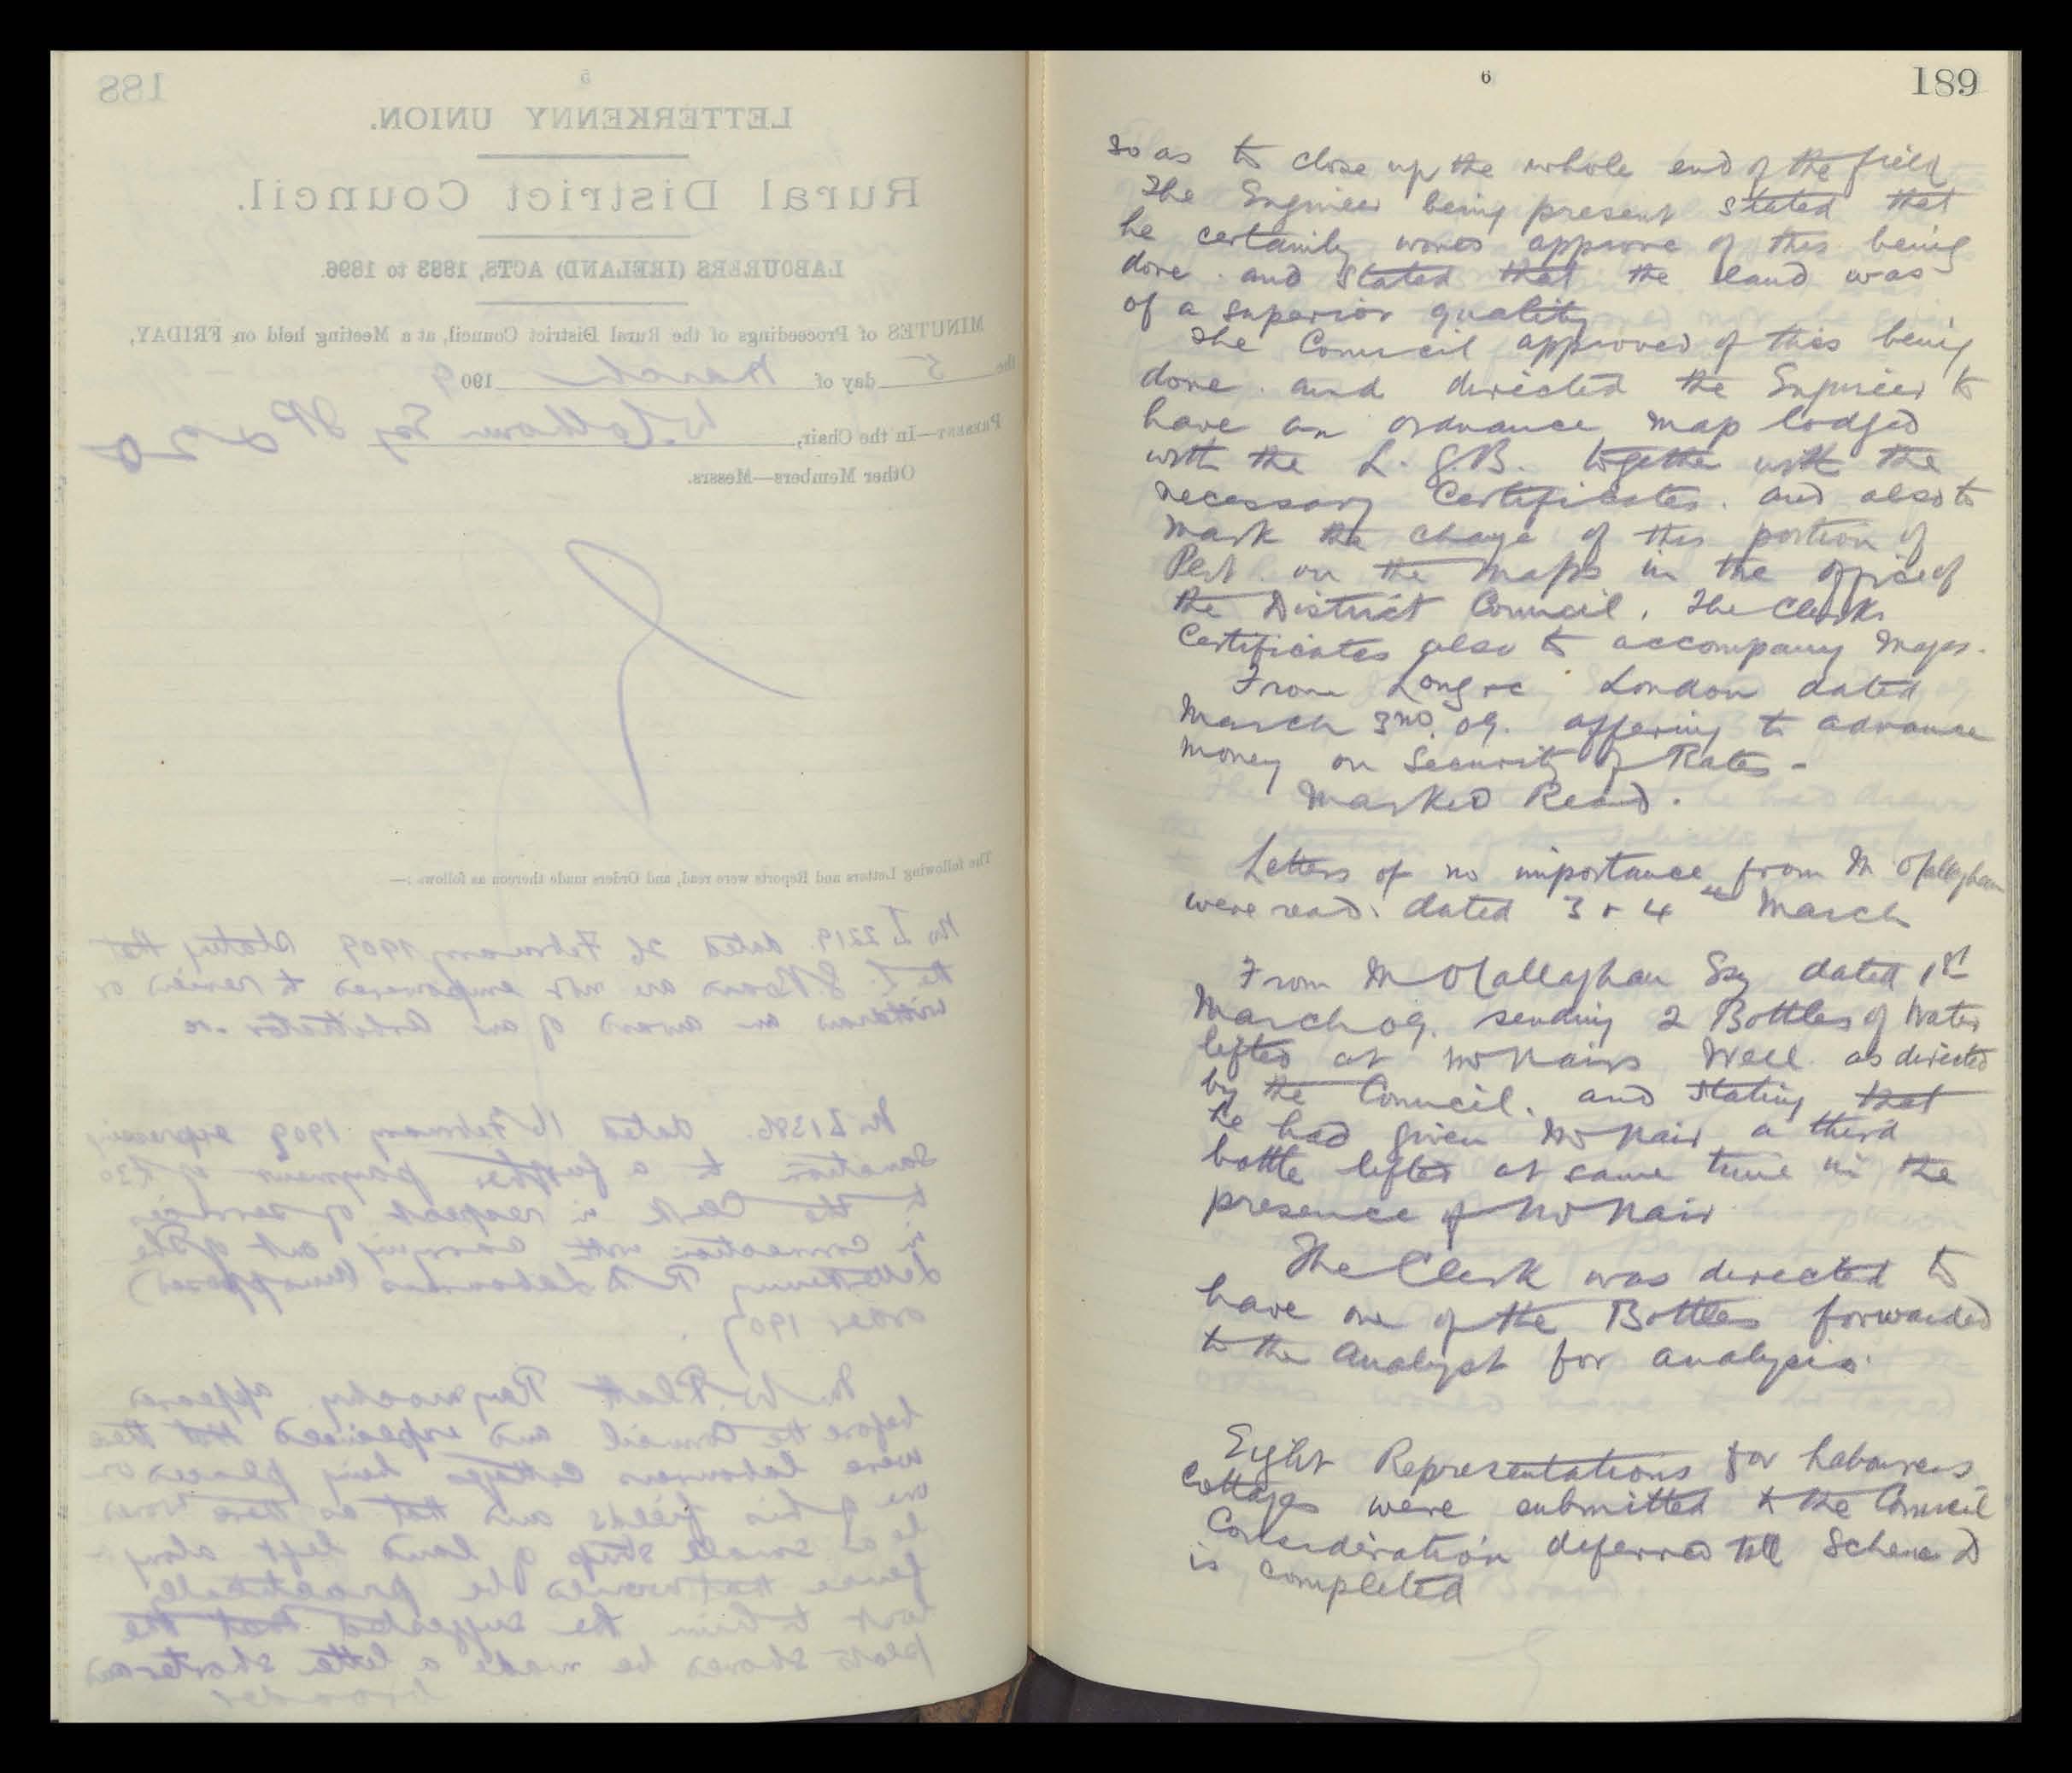 188
5
LETTERKENNY UNION.
Rural District Council.
LABOURERS (IRELAND) ACTS, 1883 to 1896.
MINUTES of Proceedings of the Rural District Council, at a Meeting held on FRIDAY,
the 5 day of March 1909
PRESENT—In the Chair, W. Esq JP
Other Members—Messrs.
The following Letters and Reports were read, and Orders made thereon as follows :—
No L 2219. dated 26 February 1909 stating that
the L. G. Board are not empowered to review or
withdraw an award of an arbitrator
dated 16 February 1909 expressing
Sanction to a further payment of £30
to the Clerk in respect of services
in connection with carrying out of the
Letterkenny R D Labourers (Unopposed)
order 1907.
Mr W. Platt Raymoghy appeared
before the Council and explained that there
were labourers cottages being placed on
one of his fields and that as there would
be a small strip of land left along
fence that would be practically
lost to him he suggested that the
plots should be made a little shorter and
broader
6
189
so as to close up the whole end of the field
The Engineer being present stated that
he certainly would approve of this being
done. and stated that the land was
of a superior quality
The Council approved of this being
done. and directed the Engineer to
have an ordnance map lodged
with the L. G B. together with the
necessary Certificates. and also to
mark the change of this portion of
Plot. on the maps in the office of
the District Council. The Clerks
Certificates also to accompany maps.
From Long &c London dated
March 3rd. 09. offering to advance
money on Security of Rates -
Marked Read.
Letters of no importance from M O'Callaghan
were read. dated 3 & 4th March
From M O'Callaghan Esq dated 1st
March 09. sending 2 Bottles of Water
lifted at McNairs Well as directed
by the Council. and stating that
he had given McNair a third
bottle lifted at same time in the
presence of McNair
The Clerk was directed to
have one of the Bottles forwarded
to the Analyst for analysis.
Eight Representations for Labourers
Cottages were submitted to the Council
Consideration deferred till Scheme
is completed